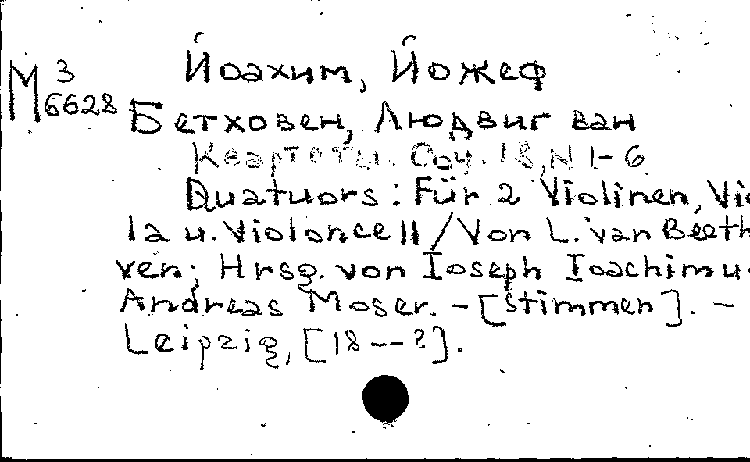 Йоахим, Йожеф
М 3
6628
Бетховен, Людвиг ван
Квартеты. Соч. 18, N 1-6
Quatuors: Für 2 Violinen, Vio
la u. Violoncell / Von L. van Beeth
ven; Hrsg. von Ioseph Ioachim u.
Andreas Moser. - [Stimmen]. -
Leipzig, [18--?].